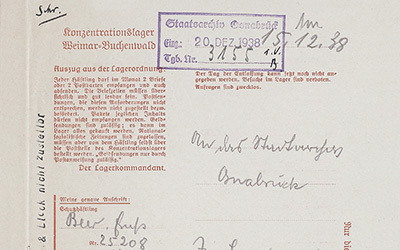 Konzentrationslager
Weimar-Buchenwald
Staatsarchiv Osnabrück
Eing: 20. DEZ. 1938
Tgb. Nr. 3155
15.12.38
Auszug aus der Lagerordnung:
Jeder Häftling darf im Monat 2 Briefe
oder 2 Postkarten empfangen und auch
absenden. Die Briefzeilen müssen über-
sichtlich und gut lesbar sein. Postsen-
dungen, die diesen Anforderungen nicht
entsprechen, werden nicht zugestellt bzw.
befördert. Pakete jeglichen Inhalts
dürfen nicht empfangen werden. Geld-
sendungen sind zulässig; es kann im
Lager alles gekauft werden. National-
sozialistische Zeitungen sind zugelassen,
müssen aber von dem Häftling selbst über
die Poststelle des Konzentrationslagers
bestellt werden. „Geldsendungen nur durch
Postanweisung zulässig!"
Der Lagerkommandant.
Der Tag der Entlassung kann jetzt noch nicht an-
gegeben werden. Besuche im Lager sind verboten.
Anfragen sind zwecklos.
An das
Osnabrück
Meine genaue Anschrift:
Schutzhäftling
Nr. 25208
nicht